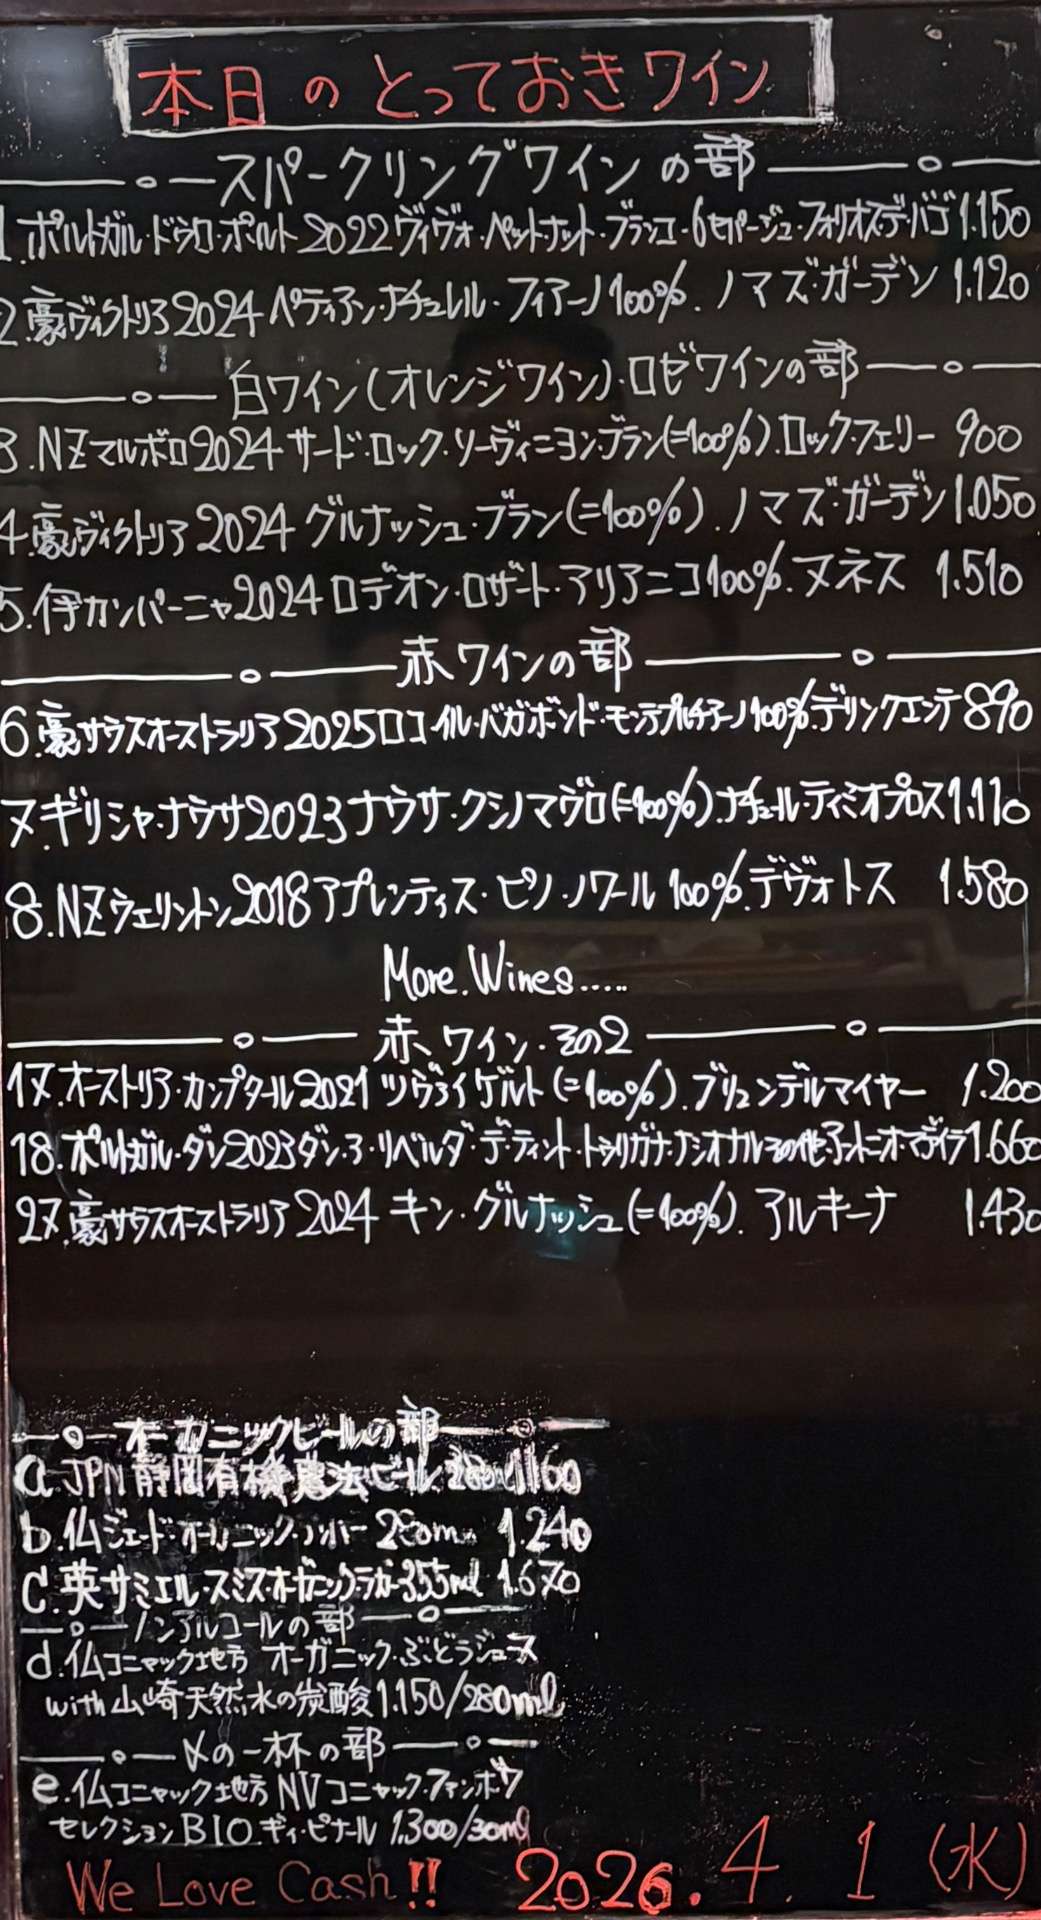 本日のとっておきワイン
スパークリングワインの部
1.ポルトガル・ドウロ・ポルト2022ヴィヴォ・ペットナット・ブランコ・6セパージュ・フォリオス・デ・バゴ1.150
2.豪ヴィクトリア2024ペティアン・ナチュレル・フィアーノ100%.ノマズ・ガーデン 1.120
白ワイン(オレンジワイン)・ロゼワインの部
3.NZマルボロ2024サード・ロック・ソーヴィニヨン・ブラン(=100%).ロックフェリー 900
4.豪ヴィクトリア2024グルナッシュ・ブラン(=100%).ノマズ・ガーデン1.050
5.伊カンパーニャ2024ロデオン・ロザート・アリアニコ100%.ヌネス 1.510
赤ワインの部
6.豪サウスオーストラリア2025ロコ・イル・バガボンド・モンテプルチアーノ100%.デリンクエンテ890
7.ギリシャ・ナウサ2023ナウサ・クシノマヴロ(=100%).ナチュール・ティミオプロス1.110
8.NZウェリントン2018アプレンティス・ピノ・ノワール100%.デヴォトス 1.580
More.Wines.....
赤ワイン・その2
17.オーストリア・カンプタール2021ツヴァイゲルト(=100%).ブリュンデルマイヤー 1.200
18.ポルトガル・ダン2023ダン・ア・リベルダ・デ・ティント・トゥリガナ・ナシオナルその他・アントニオ・マデイラ1.660
27.豪サウスオーストラリア2024キン・グルナッシュ(=100%).アルキーナ 1.430
オーガニックビールの部
a.JPN静岡有機農法ビール 280ml 1160
b.仏ジェード・オーガニック 280ml 1.240
c.英サミエル・スミス・オーガニック・ラガー355ml 1.670
ノンアルコールの部
d.仏コニャック地方 オーガニック・ぶどうジュース
with山崎天然水の炭酸1.150/280ml
〆の一杯の部
e.仏コニャック地方NVコニャック・ファンボワ
セレクションBIO.ギィ・ピナール 1.300/30ml
We Love Cash!! 2026.4.1(水)